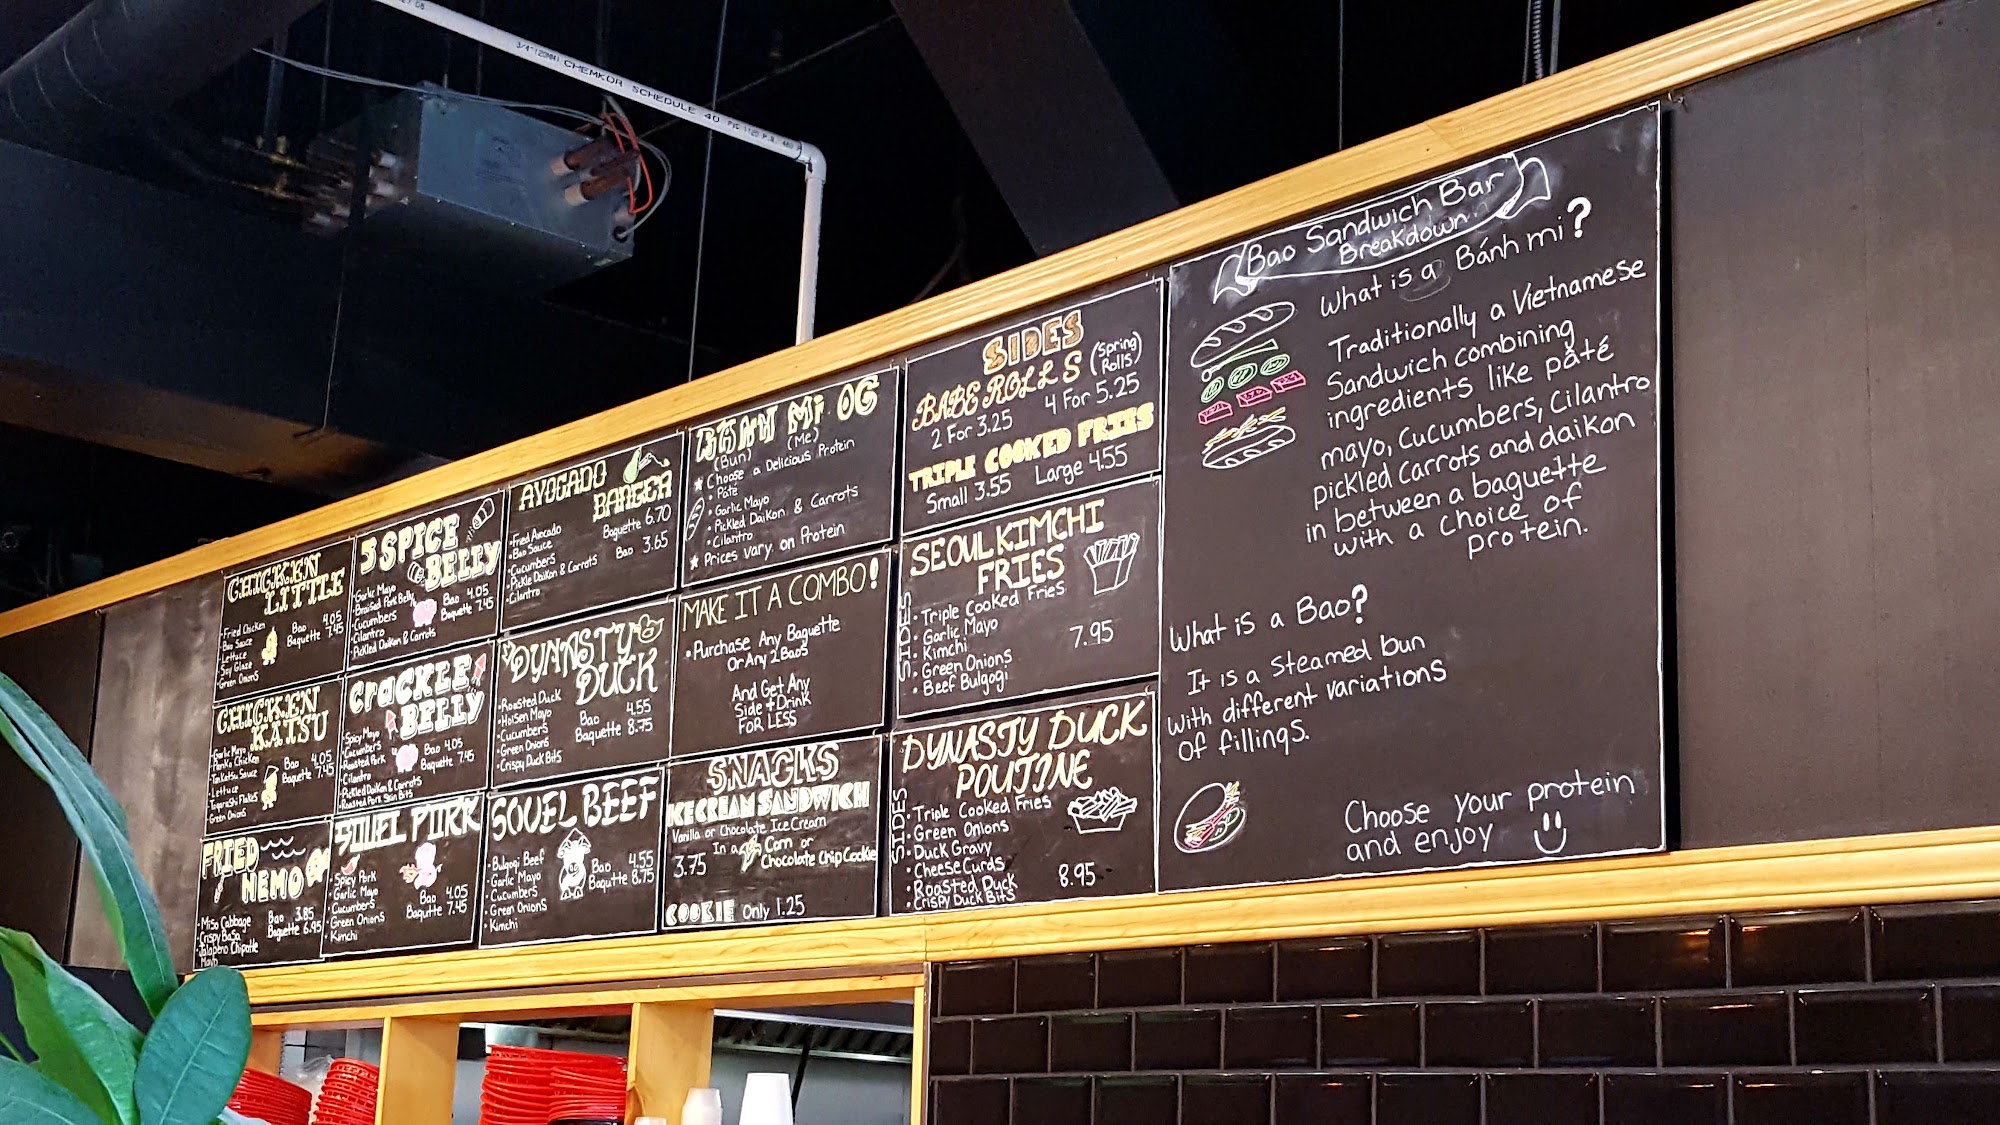 3/4" (20MM) CHEMKOR SCHEDULE 40
CHICKEN
LITTLE
• Fried Chicken
• Bao Sauce
• Lettuce
• Soy Glaze
• Green Onions
Bao 4.05
Baguette 7.45
CHICKEN
KATSU
• Garlic Mayo
• Panko Chicken
• Tonkatsu Sauce
• Lettuce
• Togarashi Flakes
• Green Onions
Bao 4.05
Baguette 7.45
FRIED
NEMO
• Miso Cabbage
• Crispy Basa
• Jalapeno Chipotle
Mayo
Bao 3.85
Baguette 6.95
5 SPICE
BELLY
• Garlic Mayo
• Braised Pork Belly
• Cucumbers
• Cilantro
• Pickled Daikon & Carrots
Bao 4.05
Baguette 7.45
CRACKLE
BELLY
• Spicy Mayo
• Cucumbers
• Roasted Pork
• Cilantro
• Pickled Daikon & Carrots
• Roasted Pork Skin Bits
Bao 4.05
Baguette 7.45
SOUEL PORK
• Spicy Pork
• Garlic Mayo
• Cucumbers
• Green Onions
• Kimchi
Bao 4.05
Baguette 7.45
AVOCADO
BANGER
• Fried Avocado
• Bao Sauce
• Cucumbers
• Pickle Daikon & Carrots
• Cilantro
Baguette 6.70
Bao 3.65
DYNASTY
DUCK
• Roasted Duck
• Hoisen Mayo
• Cucumbers
• Green Onions
• Crispy Duck Bits
Bao 4.55
Baguette 8.75
SOUEL BEEF
• Bulgogi Beef
• Garlic Mayo
• Cucumbers
• Green Onions
• Kimchi
Bao 4.55
Baguette 8.75
BÁNH Mi OG
(Bun) (Me)
★ Choose a Delicious Protein
• Pâte
• Garlic Mayo
• Pickled Daikon & Carrots
• Cilantro
★ Prices vary on Protein
MAKE IT A COMBO!
• Purchase Any Baguette
Or Any 2 Baos
And Get Any
Side + Drink
FOR LESS
SNACKS
ICE CREAM SANDWICH
Vanilla or Chocolate Ice Cream
In a Corn or
3.75 Chocolate Chip Cookie
COOKIE Only 1.25
SIDES
BABE ROLLS (Spring Rolls)
2 For 3.25 4 For 5.25
TRIPLE COOKED FRIES
Small 3.55 Large 4.55
SEOUL KIMCHI
FRIES
SIDES
• Triple Cooked Fries
• Garlic Mayo
• Kimchi
• Green Onions
• Beef Bulgogi
7.95
DYNASTY DUCK
POUTINE
SIDES
• Triple Cooked Fries
• Green Onions
• Duck Gravy
• Cheese Curds
• Roasted Duck
• Crispy Duck Bits
8.95
Bao Sandwich Bar
Breakdown
What is a Bánh mi?
Traditionally a Vietnamese
Sandwich combining
ingredients like pâté
mayo, Cucumbers, Cilantro
pickled carrots and daikon
in between a baguette
with a choice of
protein.
What is a Bao?
It is a steamed bun
with different variations
of fillings.
Choose your protein
and enjoy